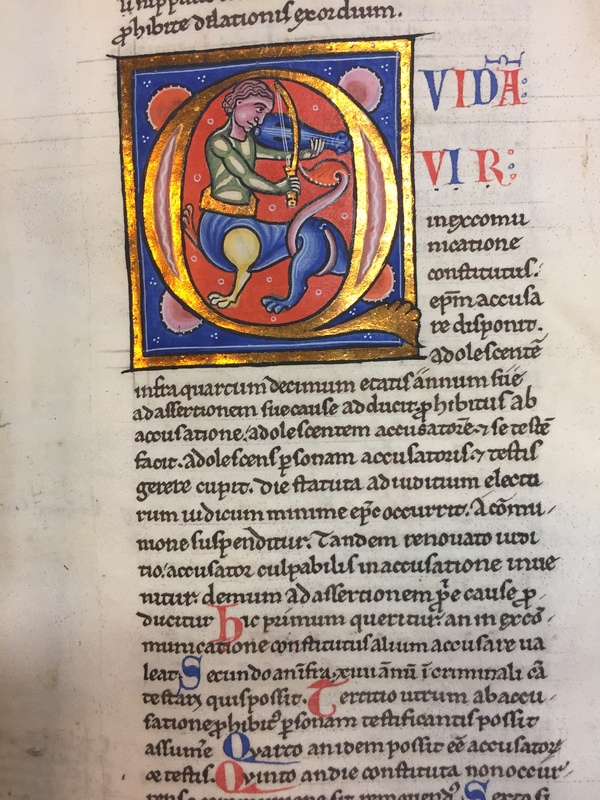 ꝓhibite dilationis exordium.
QVIDĀ
VIR:
inexcomu
nicatione
constitutus.
ep̄m accusa
re disponit.
adolescentē
infra quartum decimum etatis annum sue
ad assertionem sue cause adducit ꝓhibitus ab
accusatione. adolescentem accusatorē ⁊ se testē
facit. adolescens ꝑsonam accusatoris ⁊ testis
gerere cupit. Die statuta ad iuditium electo
rum iudicum minime ep̄c occurrit. A cōmu
nione suspenditur. Tandem renouato iudi
tio. accusator culpabilis in accusatione inue
nitur. demum ad assertionem cause ꝓ
ducitur hic primum queritur. an in excō
municatione constitutus alium accusare ua
leat. Secundo an īfra .xiiii. ānū ī criminali cā
testari quis possit. Tertio utrum ab accu
satione ꝓhibitꝰ ꝑsonam testificantis possit
assumē Quarto an idem possit eē accusator
et testis. Quinto an die constituta non occur